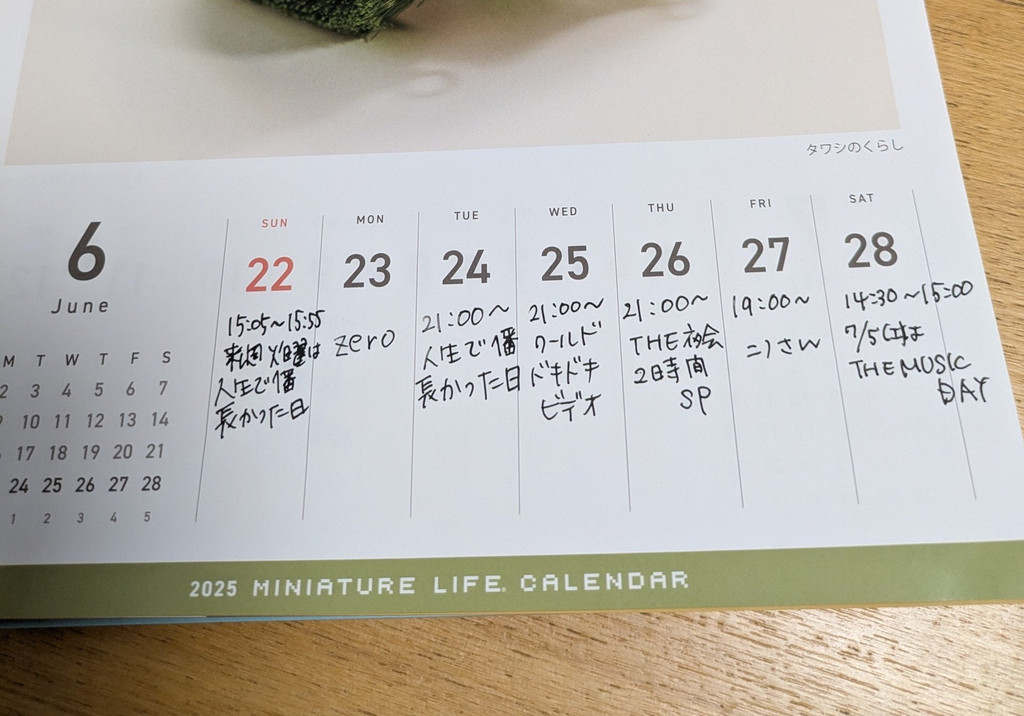 タワシのくらし
6
June
M T W T F S
2 3 4 5 6 7
9 10 11 12 13 14
16 17 18 19 20 21
24 25 26 27 28
1 2 3 4 5
SUN
22
15:05〜15:55
来週火曜は
人生で1番
長かった日
MON
23
zero
TUE
24
21:00〜
人生で1番
長かった日
WED
25
21:00〜
ワールド
ドキドキ
ビデオ
THU
26
21:00〜
THE夜会
2時間
SP
FRI
27
19:00〜
ニノさん
SAT
28
14:30〜15:00
7/5(土)は
THE MUSIC
DAY
2025 MINIATURE LIFE® CALENDAR